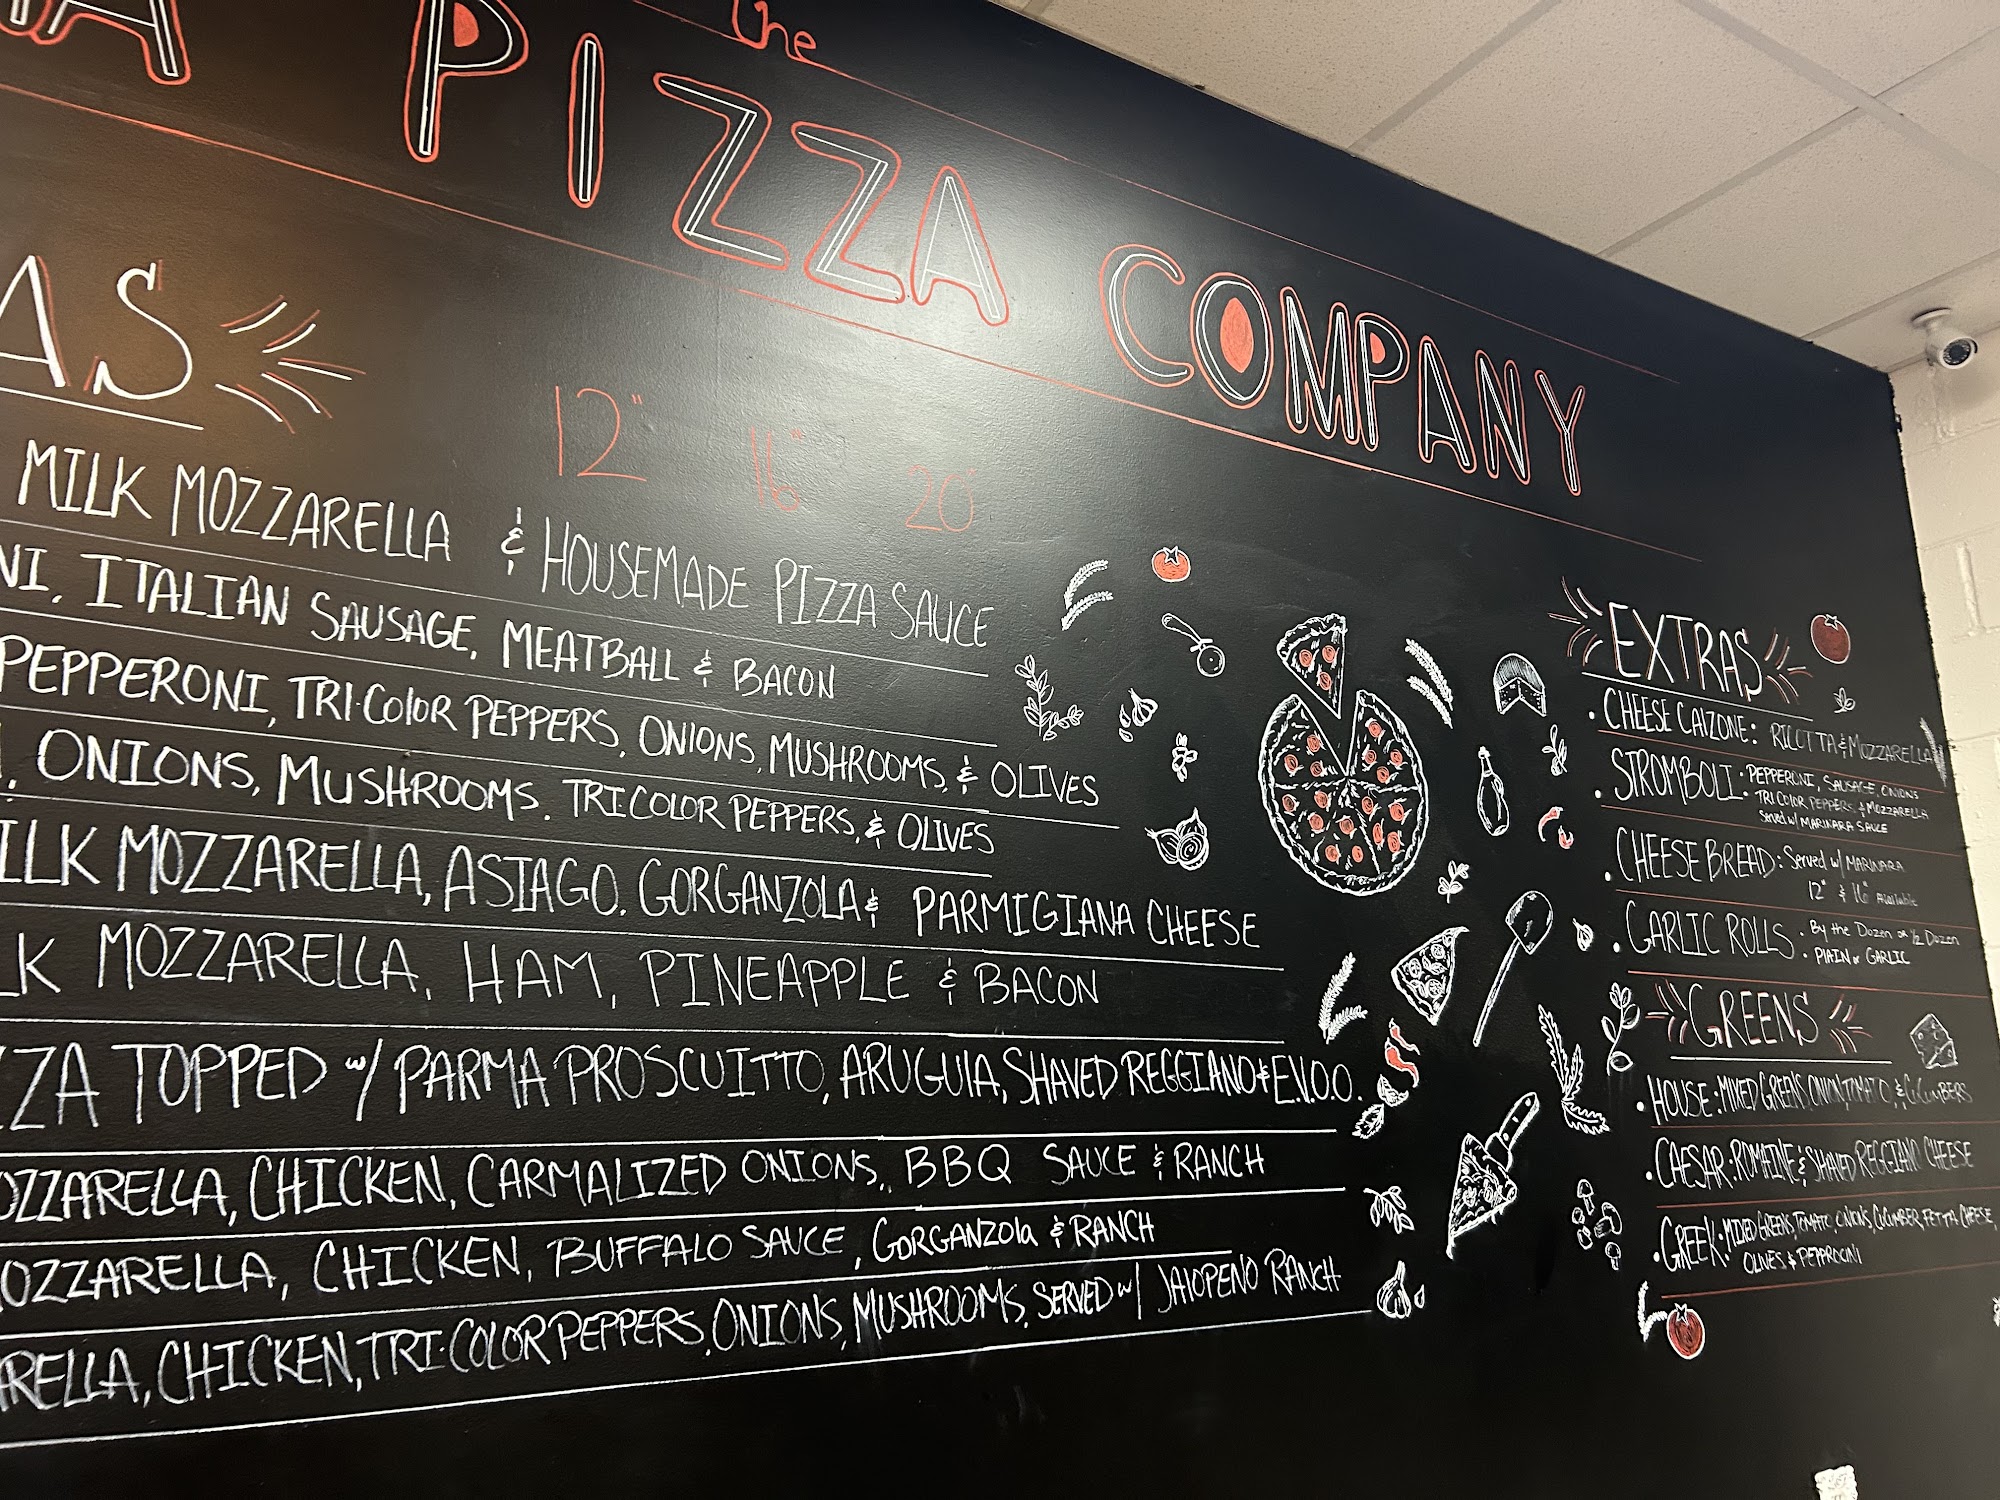 the
PIZZA COMPANY
AS
12" 16" 20"
MILK MOZZARELLA & HOUSEMADE PIZZA SAUCE
NI, ITALIAN SAUSAGE, MEATBALL & BACON
PEPPERONI, TRI-COLOR PEPPERS, ONIONS, MUSHROOMS, & OLIVES
, ONIONS, MUSHROOMS. TRI COLOR PEPPERS, & OLIVES
ILK MOZZARELLA, ASIAGO, GORGANZOLA & PARMIGIANA CHEESE
LK MOZZARELLA, HAM, PINEAPPLE & BACON
ZZA TOPPED w/ PARMA PROSCUITTO, ARUGULA, SHAVED REGGIANO & E.V.O.O.
OZZARELLA, CHICKEN, CARMALIZED ONIONS, BBQ SAUCE & RANCH
MOZZARELLA, CHICKEN, BUFFALO SAUCE, GORGANZOLA & RANCH
ARELLA, CHICKEN, TRI-COLOR PEPPERS, ONIONS, MUSHROOMS, SERVED w/ JALOPENO RANCH
EXTRAS
• CHEESE CALZONE: RICOTTA & MOZZARELLA
• STROMBOLI: PEPPERONI, SAUSAGE, ONIONS
TRI COLOR PEPPERS & MOZZARELLA
Served w/ MARINARA SAUCE
• CHEESE BREAD: Served w/ MARINARA
12" & 16" Available
• GARLIC ROLLS • By the Dozen or 1/2 Dozen
• PLAIN or GARLIC
GREENS
• HOUSE: MIXED GREENS, ONION, TOMATO, & CUCUMBERS
• CAESAR: ROMAINE & SHAVED REGGIANO CHEESE
• GREEK: MIXED GREENS, TOMATO, ONIONS, CUCUMBER, FETTA CHEESE,
OLIVES & PEPPROCINI